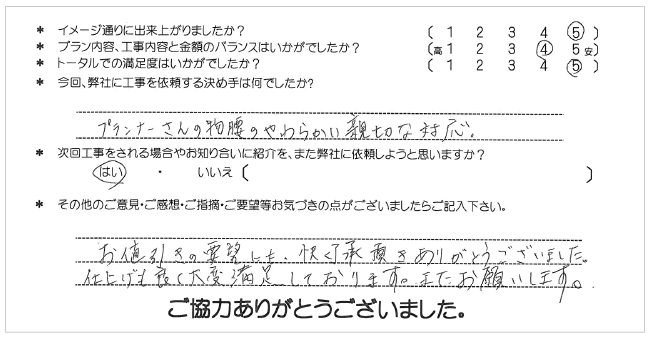 * イメージ通りに出来上がりましたか? ( 1 2 3 4 5 )
* プラン内容、工事内容と金額のバランスはいかがでしたか? (高 1 2 3 4 5 安)
* トータルでの満足度はいかがでしたか? ( 1 2 3 4 5 )
* 今回、弊社に工事を依頼する決め手は何でしたか?
プランナーさんの物腰のやわらかい親切な対応。
* 次回工事をされる場合やお知り合いに紹介を、また弊社に依頼しようと思いますか?
はい ・ いいえ ( )
* その他のご意見・ご感想・ご指摘・ご要望等お気づきの点がございましたらご記入下さい。
お値引きの要望にも、快く承頂きありがとうございました。
仕上げも良く大変満足しております。またお願いします。
ご協力ありがとうございました。